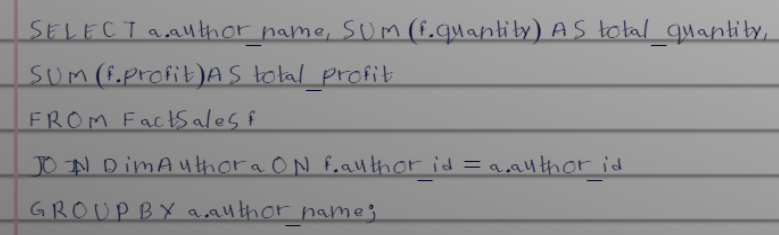 SELECT a.author_name, SUM (f.quantity) AS total_quantity,
SUM (f.profit) AS total_profit
FROM FactSales f
JOIN DimAuthor a ON f.author_id = a.author_id
GROUP BY a.author_name;